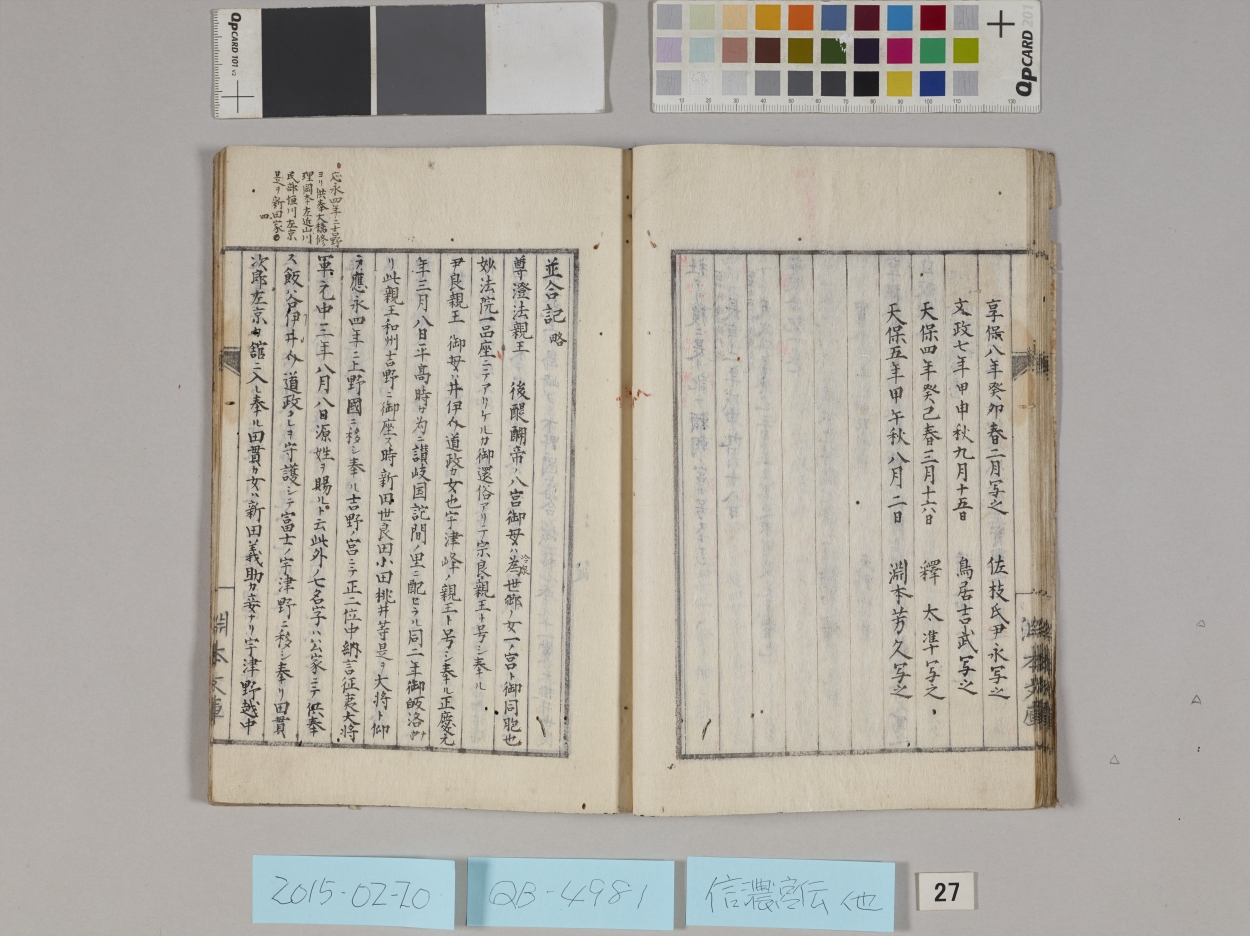 享保八年癸卯春二月写之 佐枝氏尹永写之
文政七年甲申秋九月十五日 鳥居吉武写之
天保四年癸巳春三月十六日 釋太準写之
天保五年甲午秋八月二日 淵本芳久写之
並合記 略
尊澄法親王 後醍醐帝ノ八宮御母ハ為世卿ノ女一ノ宮ト御同胞也
妙法院一品座ニテアリケルカ御還俗アリテ宗良親王ト号シ奉ル
尹良親王 御母ハ井伊介道政カ女也宇津峰ノ親王ト号シ奉ル正慶元
年三月八日平高時カ为ニ讃岐国詫間ノ里ニ配セラル同二年御皈洛
リ此親王和州吉野ニ御座ス時新田世良田小田桃井等是ヲ大将ト仰
ラ應永四年ニ上野國ニ移シ奉ル吉野ノ宮ニテ正二位中納言征夷大将
軍元中三年八月八日源姓ヲ賜ルト云此外ノ七名字ハ公家ニテ供奉
ス飯谷伊井介道政クレヲ守護シテ富士ノ宇津野ニ移シ奉リ田貫
次郎左京カ舘ニ入レ奉ル田貫カ女ハ新田義助カ妾ナリ宇津野越中
応永四年ニ吉野
ヨリ供奉大橋修
理岡本左近山川
民部恒川左京
是ヲ新田家ノ
四
淵本文庫
QPCARD 101 v3
QPCARD 201
10 20 30 40 50 60 70 80 90 100 110 130
2015-02-20
QB-4981
信濃宮伝 他
27